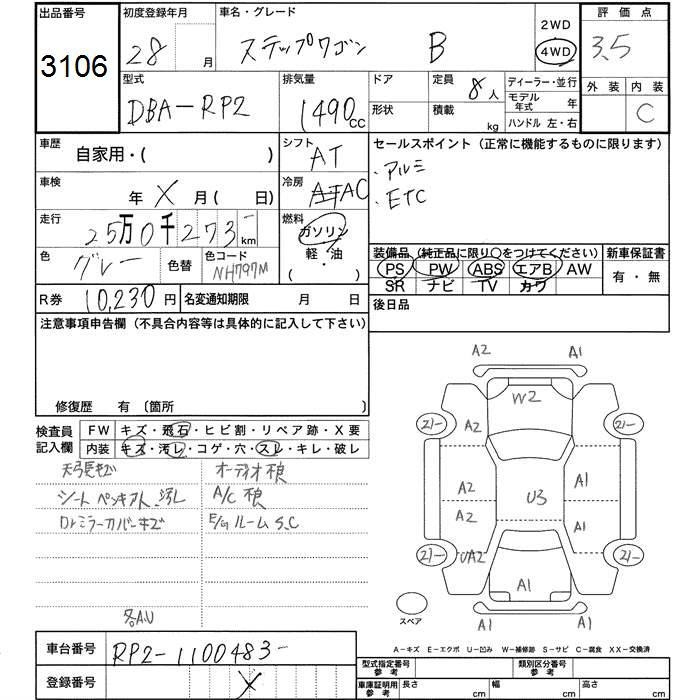 出品番号 初度登録年月 車名・グレード 2WD 評価点
3106 28 月 ステップワゴン B 4WD 3.5
型式 排気量 ドア 定員 8人 ディーラー・並行 外装 内装
DBA-RP2 1490cc 形状 積載 kg モデル年式 年 C
ハンドル 左・右
車歴 自家用・( ) シフト AT セールスポイント (正常に機能するものに限ります)
車検 年 X 月 ( 日) 冷房 AC ・アルミ
・ETC
走行 25万0千273- km 燃料 ガソリン
軽・油
( )
装備品 (純正品に限り○をつけてください) 新車保証書
色 グレー 色替 色コード NH797M
PS PW ABS エアB AW 有・無
SR ナビ TV カワ
R券 10,230円 名変通知期限 月 日 後日品
注意事項申告欄 (不具合内容等は具体的に記入して下さい)
修復歴 有 〔箇所 〕
検査員記入欄 FW キズ・飛石・ヒビ割・リペア跡・X要
内装 キズ・汚レ・コゲ・穴・スレ・キレ・破レ
オーディオ不良
シート 汚レ A/C 不良
ミラーカバーキズ E/gルームS,C
各A,U
A2 A1
W2
21- 21-
A2
A2 A1
U3
A2 A1
21- UA2 21-
A1
A1 A1
スペア
A-キズ E-エクボ U-凹み W-補修跡 S-サビ C-腐食 XX-交換済
車台番号 RP2-1100483-
登録番号 X
型式指定番号 参考 類別区分番号 参考
車庫証明用 参考 長さ cm 幅 cm 高さ cm